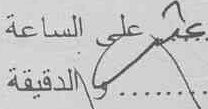 على الساعة
........ و الدقيقة